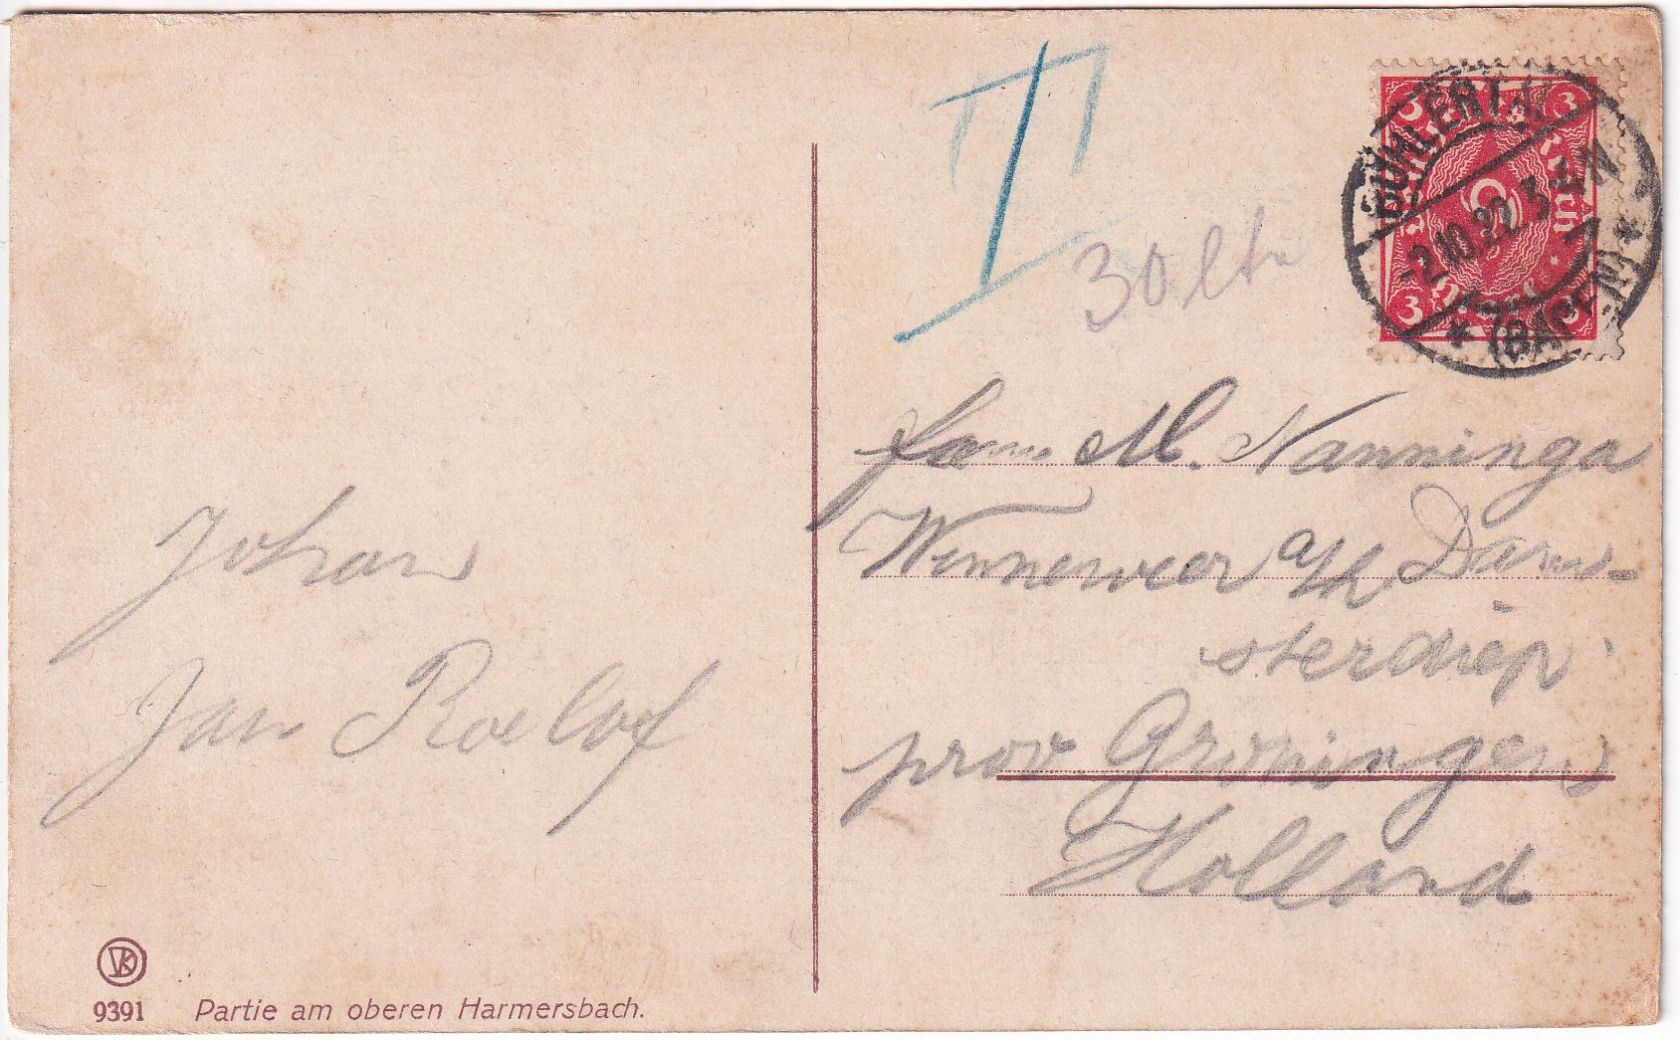 Johan
Jan Roelof
VK
9391 Partie am oberen Harmersbach.
T
30 cts
3 3 3 3
BÜHLERTAL
-2.10.22. 3-4 N
* (BADEN) *
Fam. M. Nanninga
Winneweer a/h Dam-
sterdiep
prov Groningen
Holland